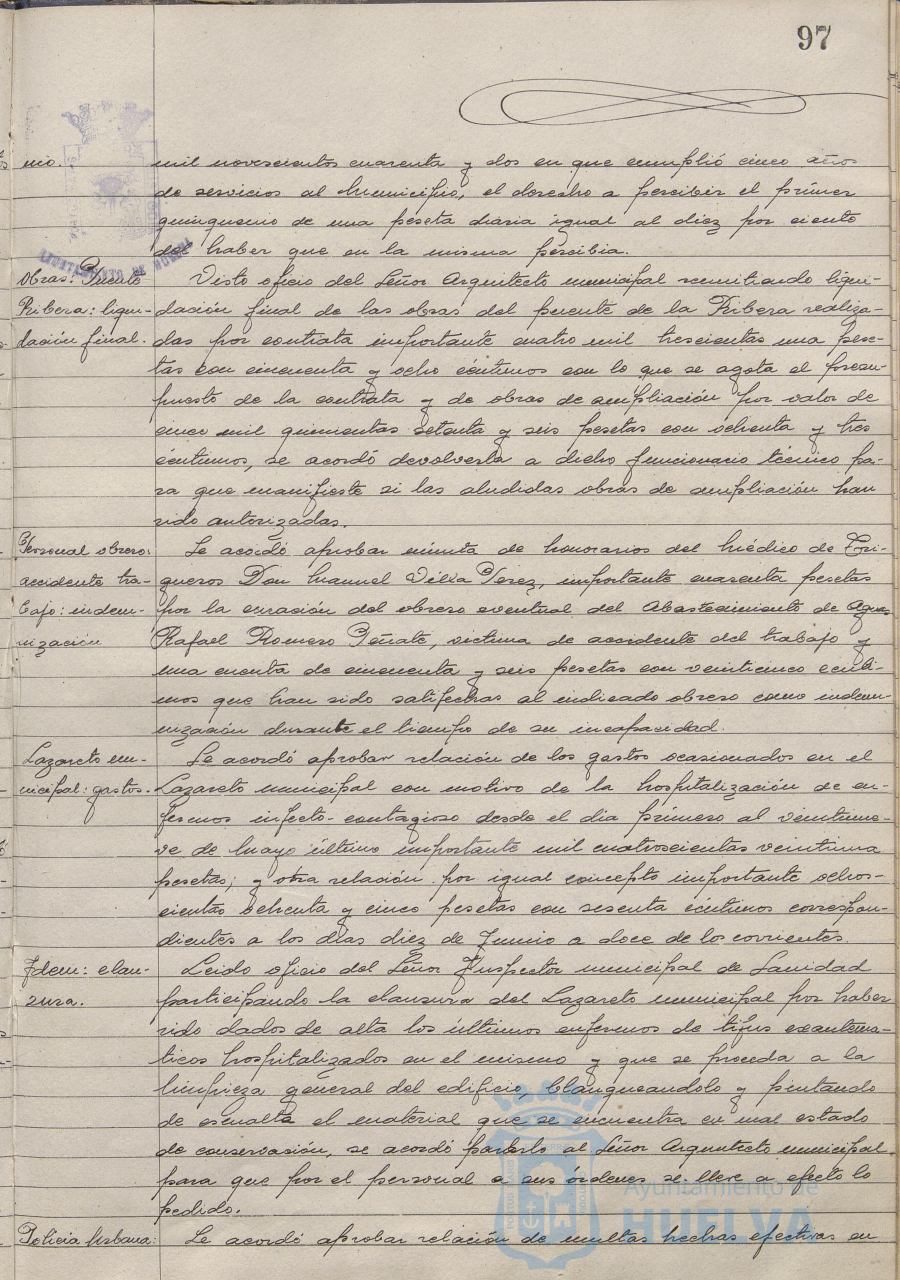 97
nio.
mil novescientos cuarenta y dos en que cumplió cinco años
de servicios al Municipio, el derecho a percibir el primer
quinquenio de una peseta diaria igual al diez por ciento
del haber que en la misma percibia.
AYUNTAMIENTO DE HUELVA
Obras: Puente
Ribera: liqui-
dación final.
Visto oficio del Señor Arquitecto municipal remitiendo liqui-
dación final de las obras del puente de la Ribera realiza-
das por contrata importante cuatro mil trescientas una pese-
tas con cincuenta y ocho céntimos con lo que se agota el presu-
puesto de la contrata y de obras de ampliación por valor de
cinco mil quinientas setenta y seis pesetas con ochenta y tres
céntimos, se acordó devolverla a dicho funcionario técnico pa-
ra que manifieste si las aludidas obras de ampliación han
sido autorizadas.
Personal obrero:
accidente tra-
bajo: indem-
nización
Se acordó aprobar minuta de honorarios del Médico de Tri-
gueros Don Manuel Vélez Perez, importante cuarenta pesetas
por la curación del obrero eventual del Abastecimiento de Aguas
Rafael Romero Peñate, victima de accidente del trabajo y
una cuenta de cincuenta y seis pesetas con veinticinco cénti-
mos que han sido satisfechas al indicado obrero como indem-
nización durante el tiempo de su incapacidad.
Lazareto mu-
nicipal: gastos.
Se acordó aprobar relación de los gastos ocasionados en el
Lazareto municipal con motivo de la hospitalización de en-
fermos infecto-contagioso desde el dia primero al veintinue-
ve de Mayo último importante mil cuatroscientas veintiuna
pesetas; y otra relación por igual concepto importante ochos-
cientas ochenta y cinco pesetas con sesenta céntimos correspon-
dientes a los dias diez de Junio a doce de los corrientes.
Idem: clau-
sura.
Leido oficio del Señor Inspector municipal de Sanidad
participando la clausura del Lazareto municipal por haber
sido dados de alta los últimos enfermos de tifus exantemá-
ticos hospitalizados en el mismo y que se proceda a la
limpieza general del edificio, blanqueandolo y pintando
de esmalte el material que se encuentra en mal estado
de conservación, se acordó pasarlo al Señor Arquitecto municipal
para que por el personal a sus órdenes se lleve a efecto lo
pedido.
Ayuntamiento de
HUELVA
Policia Urbana:
Se acordó aprobar relación de multas hechas efectivas en